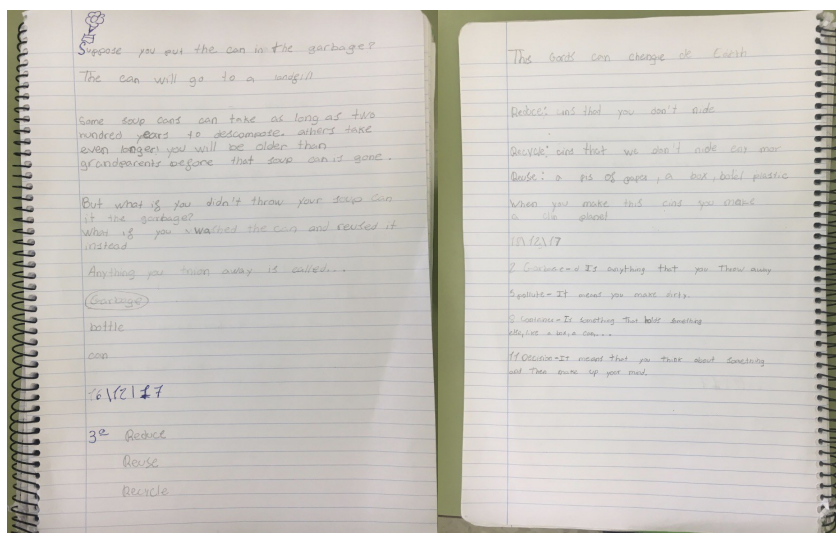 Suppose you put the can in the garbage?
The can will go to a landfill
Some soup cans can take as long as two
hundred years to descompose. others take
even longer, you will be older than
grandparents before that soup can is gone.
But what if you didn't throw your soup can
it the garbage?
What if you washed the can and reused it
instead
Anything you away is called...
Garbage
bottle
can
16\12\17
3º Reduce
Reuse
Recycle
The can change Earth
Reduce: cins that you don't nide
Recycle: cins that we don't nide mor
Reuse: a pis of paper, a box, plastic
When you make this cins you
a planet
\12\17
2 Garbage= Is anything that you Throw away
5 pollute- It means you make dirty.
8 Container= Is something That holds something
else, like a box, a can...
11 Decision-IT means that you Think about something
and Then up your mind.